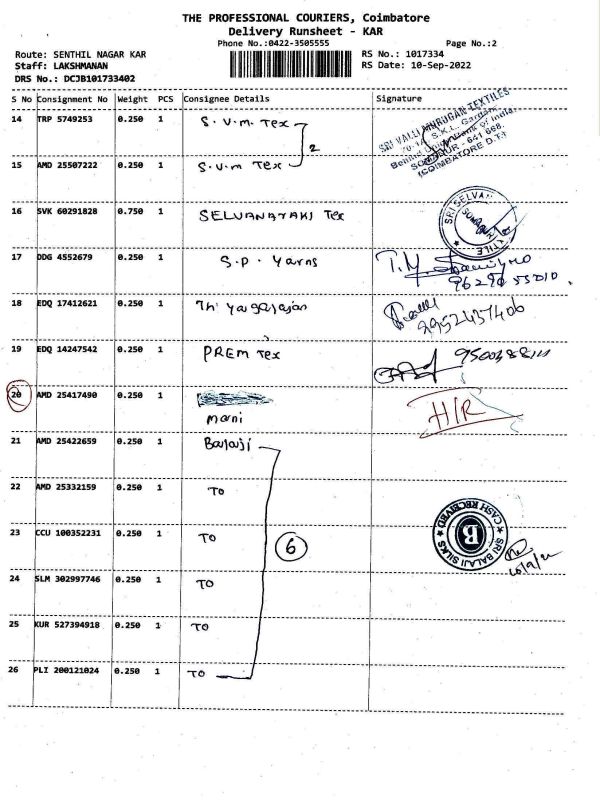 THE PROFESSIONAL COURIERS, Coimbatore
Delivery Runsheet - KAR
Phone No.:0422-3505555 Page No.:2
Route: SENTHIL NAGAR KAR RS No.: 1017334
Staff: LAKSHMANAN RS Date: 10-Sep-2022
DRS No.: DCJB101733402
S No Consignment No Weight PCS Consignee Details Signature
14 TRP 5749253 0.250 1 S.V.M. Tex
2
15 AMD 25507222 0.250 1 S.V.M Tex
SRI VALLI MURUGAN TEXTILES
COIMBATORE D.T.
16 SVK 60291828 0.750 1 SELVANAYAKI Tex
SRI SELVAN
17 DDG 4552679 0.250 1 S.P. Yarns
18 EDQ 17412621 0.250 1 Thiyagarajan
9952437406
19 EDQ 14247542 0.250 1 PREM Tex
20 AMD 25417490 0.250 1
Mani
21 AMD 25422659 0.250 1 Balaji
22 AMD 25332159 0.250 1 TO
23 CCU 100352231 0.250 1 TO
6
SRI BALAJI SILKS
CASH RECEIVED
B
24 SLM 302997746 0.250 1 TO
25 KUR 527394918 0.250 1 TO
26 PLI 200121024 0.250 1 TO